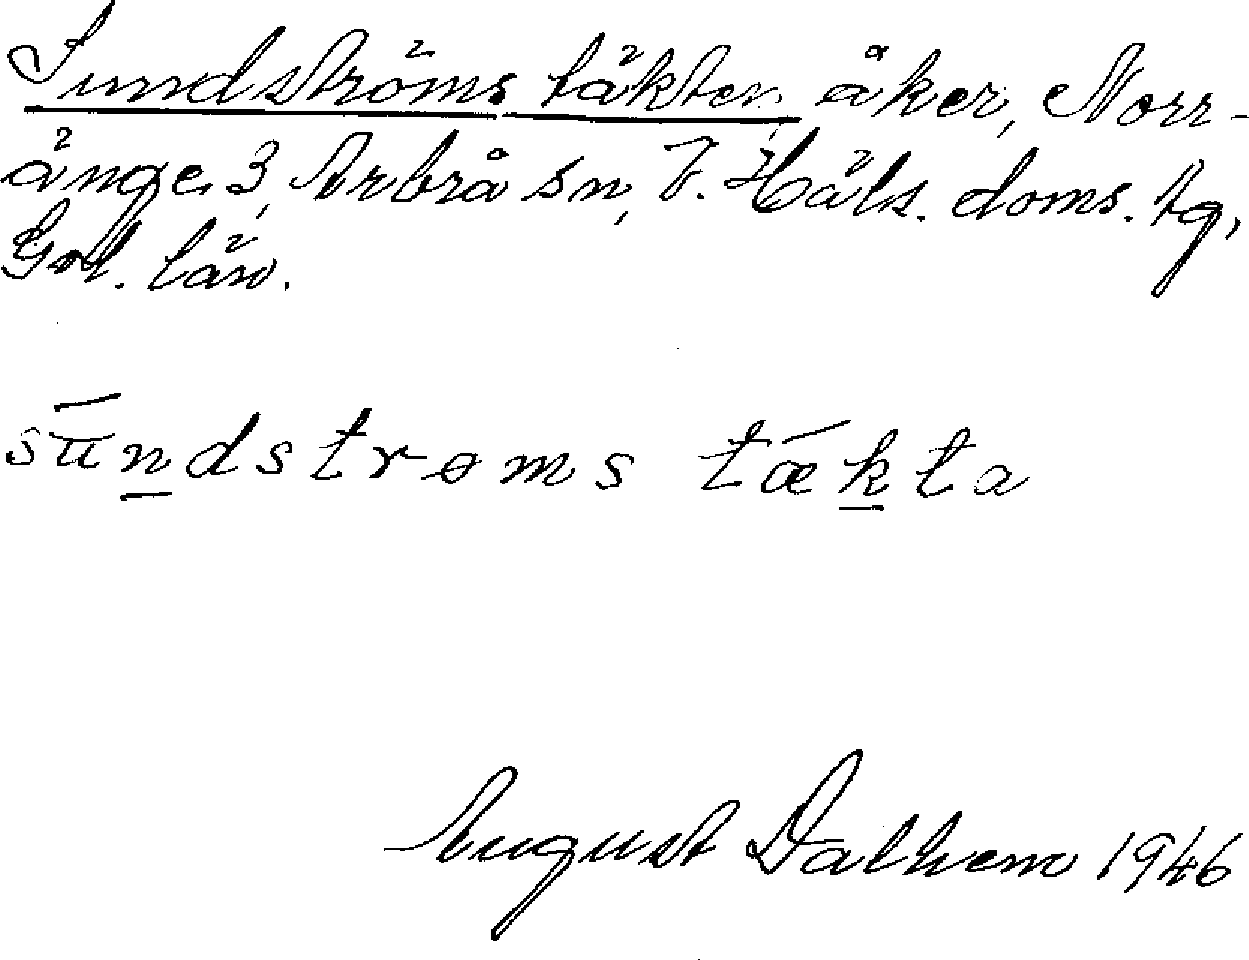 Sundströms täkter, åker, Norr-
änge 3, Arbrå sn, V. Häls. doms. tg,
Gvl. län.
sūndstrøms tǣkta
August Dalhem 1946